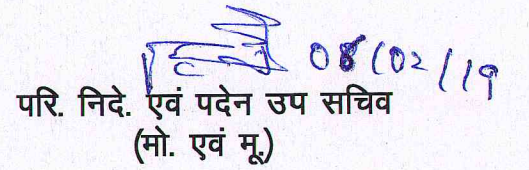 08/02/19
परि. निदे. एवं पदेन उप सचिव
(मो. एवं मू.)